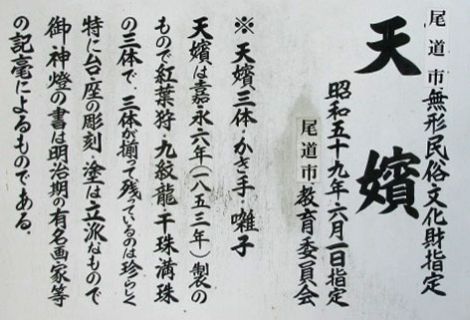 尾道市無形民俗文化財指定
天嬪
昭和五十九年六月一日指定
尾道市教育委員会
※天嬪三体・かき手・囃子
天嬪は嘉永六年(一八五三年)製の
もので紅葉狩・九紋龍・干珠満珠
の三体で、三体が揃って残っているのは珍らしく
特に台・座の彫刻・塗は立派なもので
御神燈の書は明治期の有名画家等
の記毫によるものである。